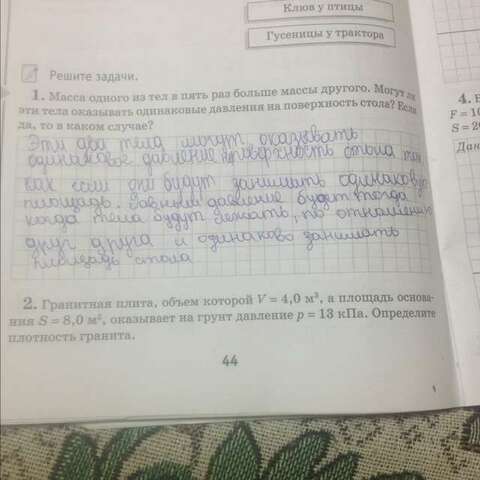 Клюв у птицы
Гусеницы у трактора
Решите задачи.
1. Масса одного из тел в пять раз больше массы другого. Могут ли
эти тела оказывать одинаковые давления на поверхность стола? Если
да, то в каком случае?
Эти два тела могут оказывать
одинаковое давление поверхность стола так
как если они будут занимать одинаковую
площадь. давление будет тогда
когда тела будут лежать, по отношению
друг друга и одинаково занимать
площадь стола
2. Гранитная плита, объем которой V = 4,0 м³, а площадь основа-
ния S = 8,0 м², оказывает на грунт давление p = 13 кПа. Определите
плотность гранита.
44
4.
F = 10
S = 2
Дан